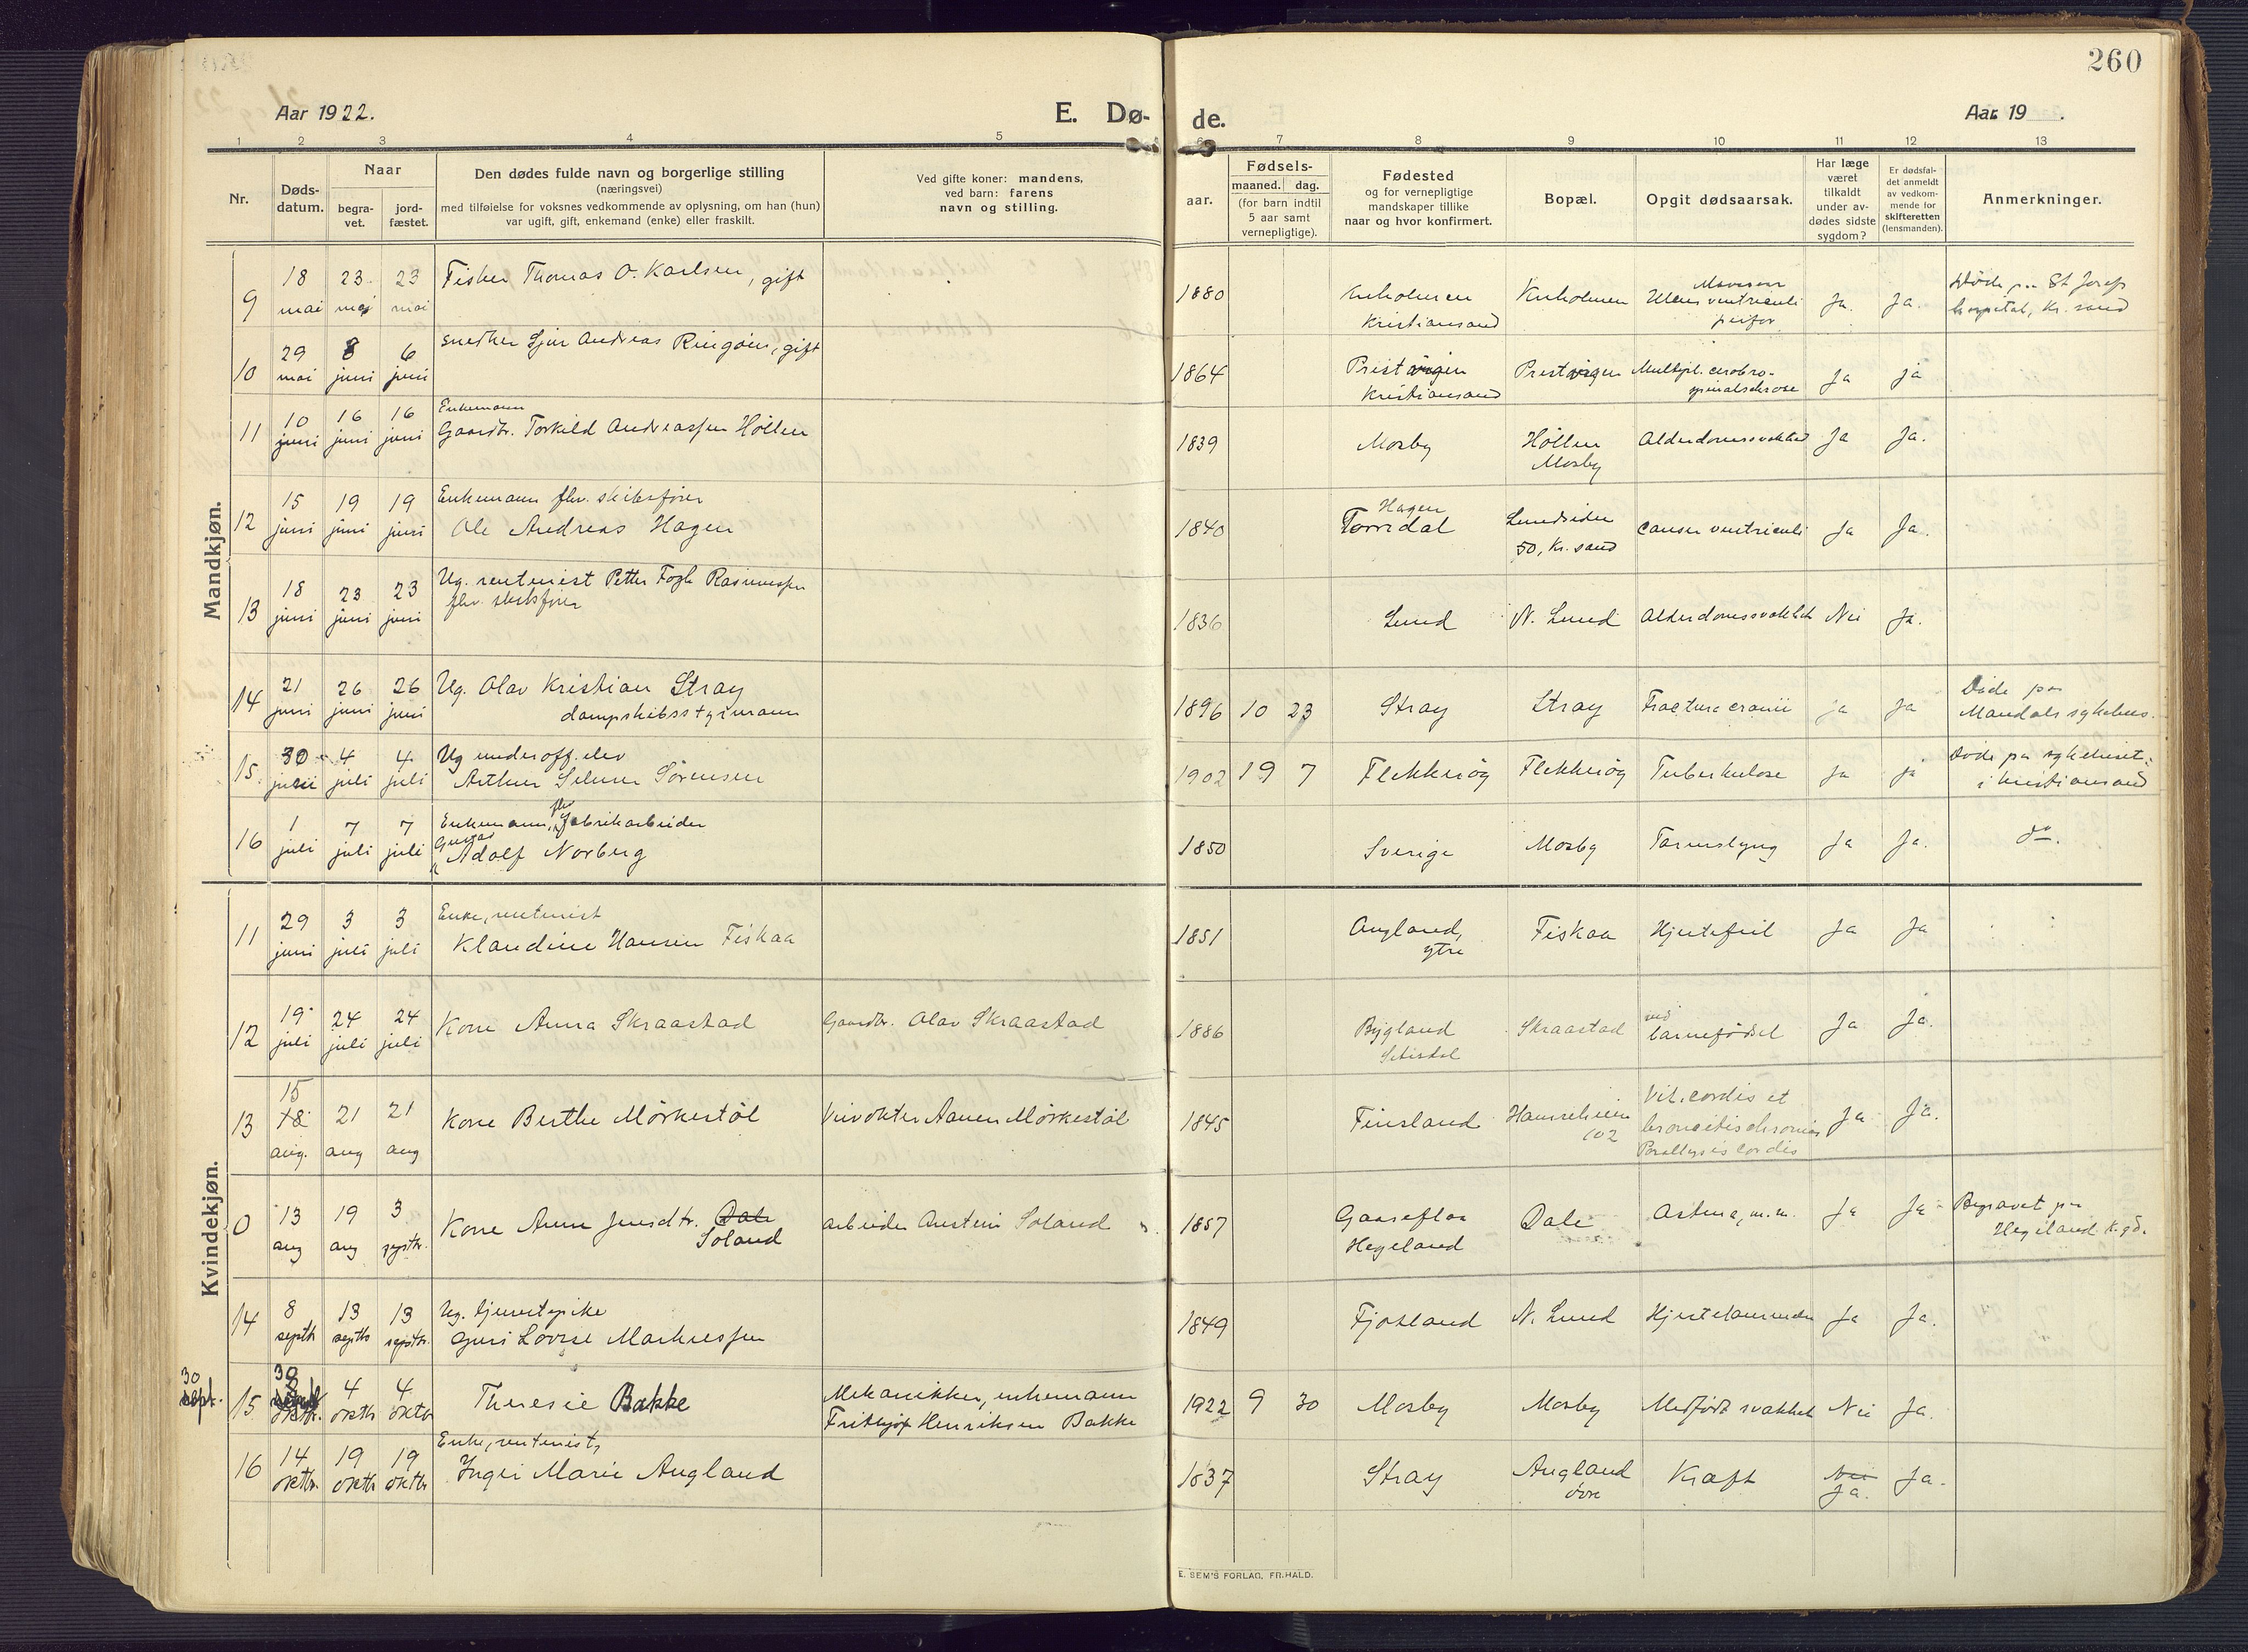 260
Aar 1922.
E. Dø-
de.
Aar 19 .
1 2 3 4 5 6 7 8 9 10 11 12 13
Nr.
Døds-
datum.
Naar
begra-
vet.
jord-
fæstet.
Den dødes fulde navn og borgerlige stilling
(næringsvei)
med tilføielse for voksnes vedkommende av oplysning, om han (hun)
var ugift, gift, enkemand (enke) eller fraskilt.
Ved gifte koner: mandens,
ved barn: farens
navn og stilling.
Fødsels-
aar.
maaned. dag.
(for barn indtil
5 aar samt
vernepligtige).
Fødested
og for vernepligtige
mandskaper tillike
naar og hvor konfirmert.
Bopæl.
Opgit dødsaarsak.
Har læge
været
tilkaldt
under av-
dødes sidste
sygdom?
Er dødsfal-
det anmeldt
av vedkom-
mende for
skifteretten
(lensmanden).
Anmerkninger.
Mandkjøn.
9 18 mai 23 mai 23 mai Fisker Thomas O. Karlsen, gift 1880 Kuholmen Kristiansand Kuholmen Ulcus ventriculi perfor Ja. Ja. Døde paa St Josefs hospital, Kr. sand
10 29 mai 8 juni 6 juni Snedker Andreas Ringøen, gift 1864 Prestvigen Kristiansand Prestvigen Multipl. cerebro-spinalsclrose Ja ja
11 10 juni 16 juni 16 juni Enkemann Gaardbr. Torkild Andreassen Höllen 1839 Mosby Höllen Mosby Alderdomssvakhed Ja Ja.
12 15 juni 19 juni 19 juni Enkemann fhv. skibsfører Ole Andreas Hagen 1840 Hagen Torridal Lundsiden 50, Kr. sand Cancer ventriculi Ja Ja.
13 18 juni 23 juni 23 juni Ug. rentenist Petter Rasmussen fhv. skibsfører 1836 Lund N. Lund Alderdomssvakhet Nei Ja.
14 21 juni 26 juni 26 juni Ug. Olav Kristian Stray dampskibsstyrmann 1896 10 23 Stray Stray Fractura cranii ja ja Döde paa Mandals sykehus.
15. 30 juni 4 juli 4 juli Ug underoff. elev Arthur Selmer Sörensen 1902 19 7 Flekkeröy Flekkeröy Tuberkulose ja ja Döde paa sykehuset i Kristiansand
16 1 juli 7 juli 7 juli Enkemann, fhv fabrikarbeider Gustav Adolf Norberg 1850 Sverige Mosby Tarmslyng Ja Ja. do.
Kvindekjøn.
11 29 juni 3 juli 3 juli Enke, rentenist Klaudine Hansen Fiskaa 1851 Augland, ytre Fiskaa Hjertefeil Ja Ja
12 19 juli 24 juli 24 juli Kone Anna Skraastad Gaardbr. Olav Skraastad 1886 Bygland Setesdal Skraastad ved barnefödsel Ja Ja.
13 15 18 aug. 21 aug 21 aug Kone Berthe Mörkestöl Aanen Mörkestöl 1845 Finsland Hamreheien 102 Vit. cordis et broncitis chronica Parallysis cordis Ja Ja.
0 13 aug 19 aug 3 septbr. Kone Anne Jensdtr. Dale Soland arbeider Austein Soland 1857 Gaaseflaa Hegeland Dale Astma, m.m. Ja Ja Begravet paa Hegeland k.gd.
14 8 septb 13 septb 13 septbr. Ug. tjenestepike Guri Lovise Markussen 1849 Fjotland N. Lund Ja Ja.
30 sept. 15 30 oktbr. 4 oktb 4 oktbr Theresie Bakke Mekanikker, enkemann Frithjof Henriksen Bakke 1922 9 30 Mosby Mosby Medfödt svakhet Nei Ja.
16 14 oktbr. 19 oktb 19 oktbr Enke, rentenist, Inger Marie Augland 1837 Stray Augland övre Kræft Nei Ja. Ja.
E. SEM'S FORLAG, FR.HALD.